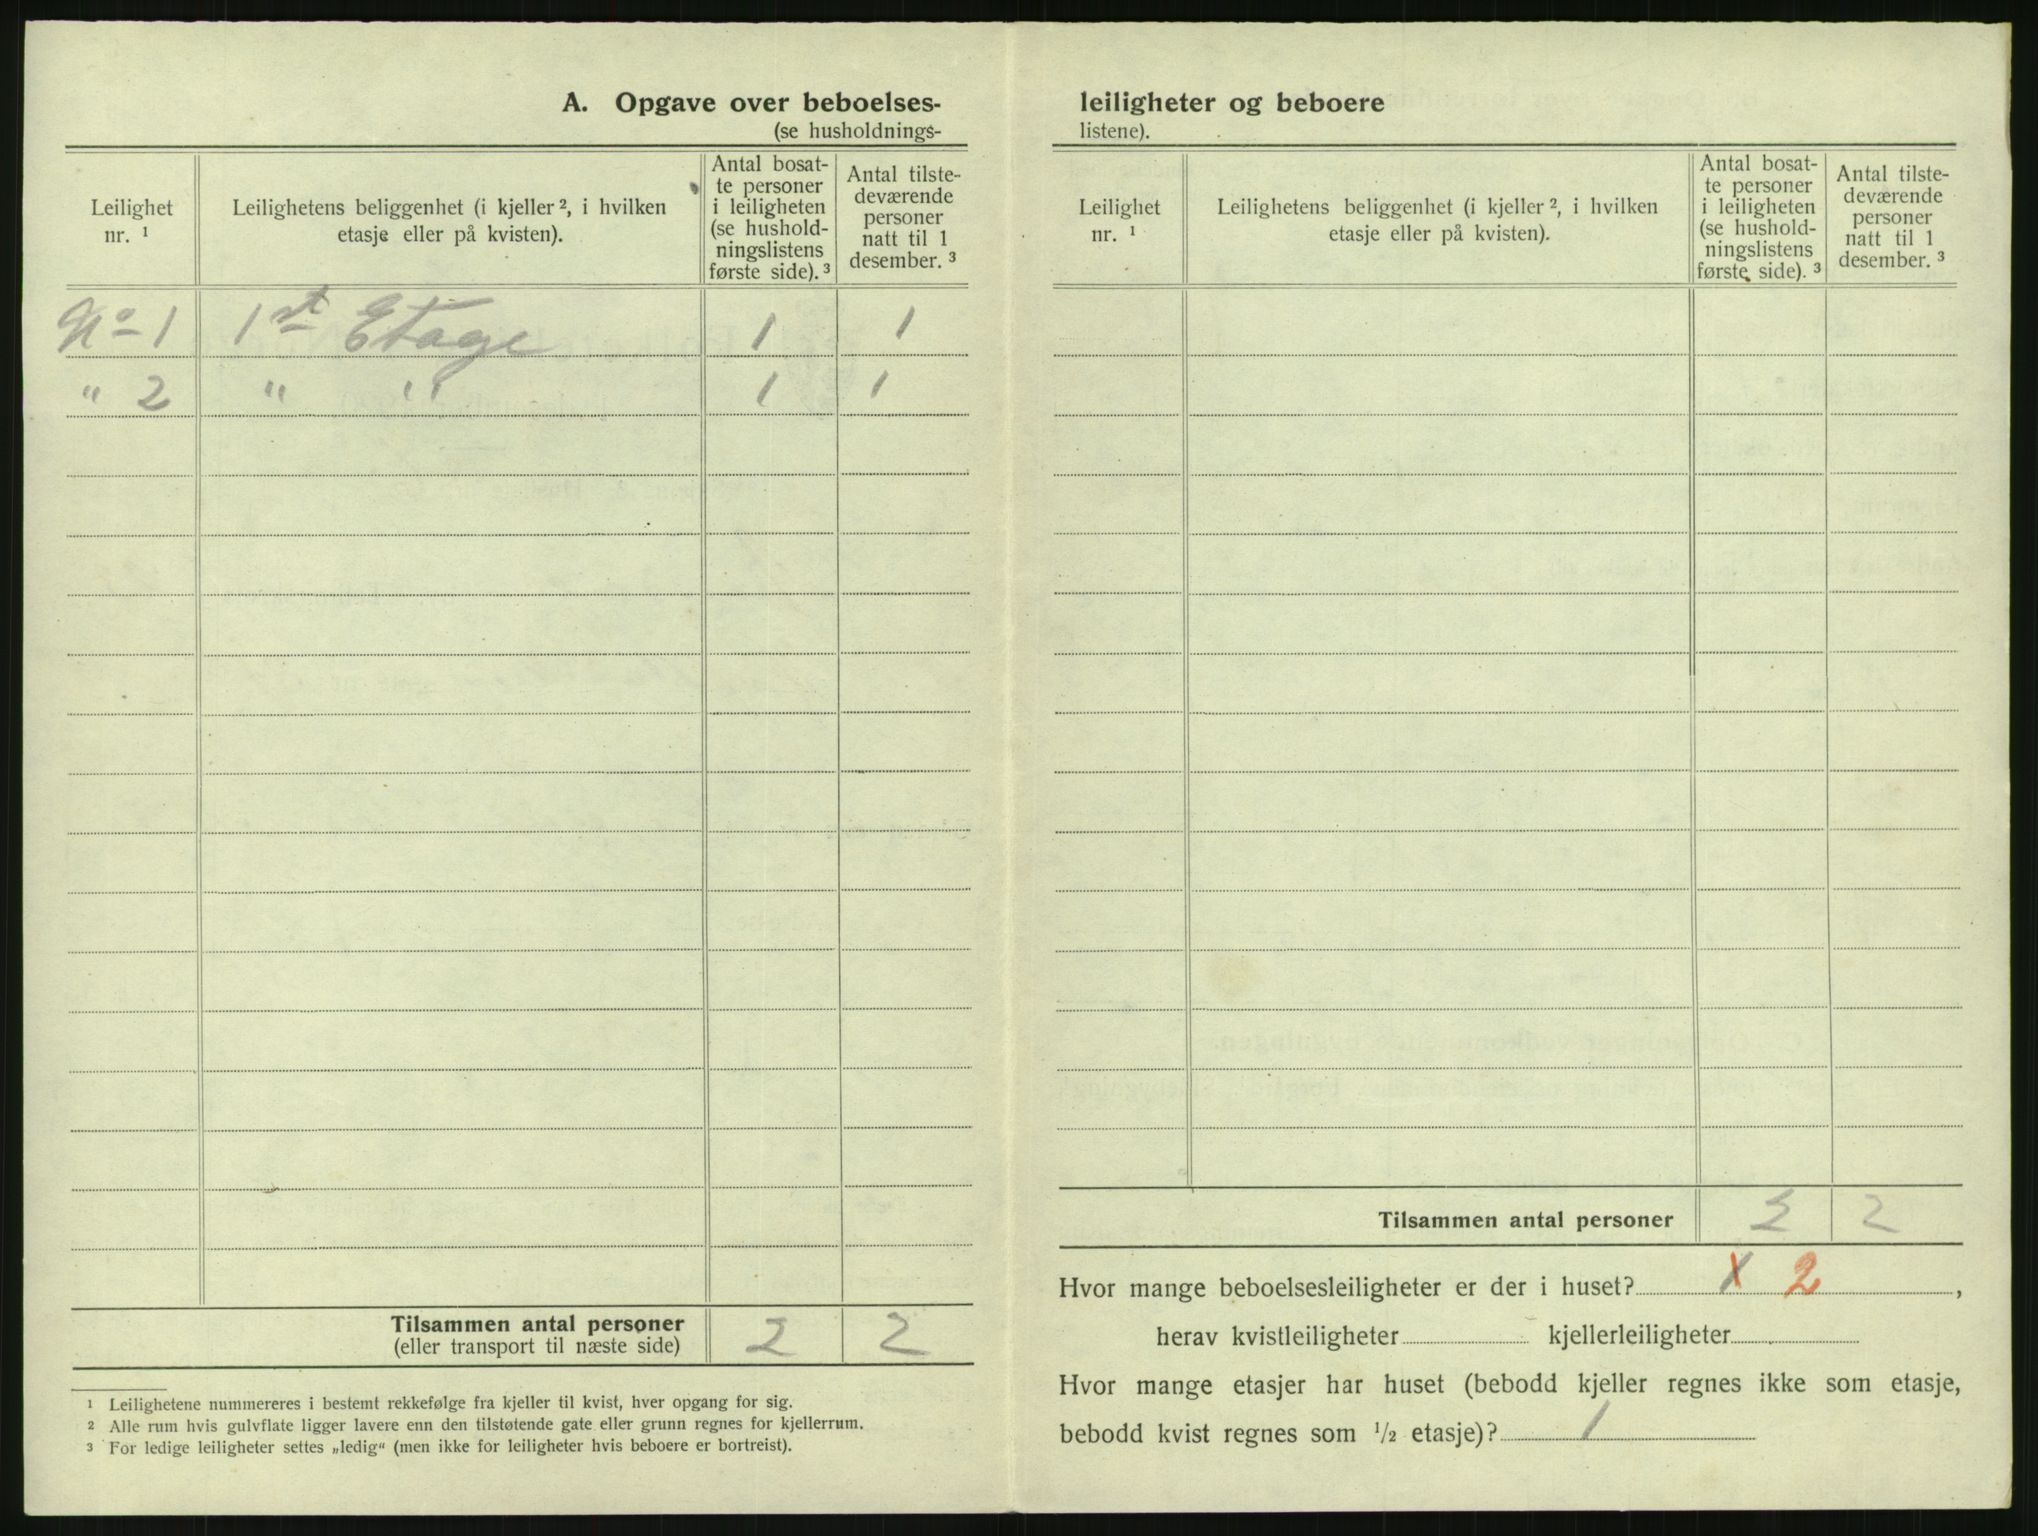 A. Opgave over beboelses-
(se husholdnings-
Leilighet nr. ¹
Leilighetens beliggenhet (i kjeller ², i hvilken
etasje eller på kvisten).
Antal bosat-
te personer
i leiligheten
(se hushold-
ningslistens
første side). ³
Antal tilste-
deværende
personer
natt til 1
desember. ³
No 1 1st Etage 1 1
" 2 " " 1 1
Tilsammen antal personer 2 2
(eller transport til næste side)
¹ Leilighetene nummereres i bestemt rekkefølge fra kjeller til kvist, hver opgang for sig.
² Alle rum hvis gulvflate ligger lavere enn den tilstøtende gate eller grunn regnes for kjellerrum.
³ For ledige leiligheter settes „ledig" (men ikke for leiligheter hvis beboere er bortreist).
leiligheter og beboere
listene).
Leilighet
nr. ¹
Leilighetens beliggenhet (i kjeller ², i hvilken
etasje eller på kvisten).
Antal bosat-
te personer
i leiligheten
(se hushold-
ningslistens
første side). ³
Antal tilste-
deværende
personer
natt til 1
desember. ³
Tilsammen antal personer 2 2
Hvor mange beboelsesleiligheter er der i huset? 2,
herav kvistleiligheter kjellerleiligheter
Hvor mange etasjer har huset (bebodd kjeller regnes ikke som etasje,
bebodd kvist regnes som ½ etasje)? 1